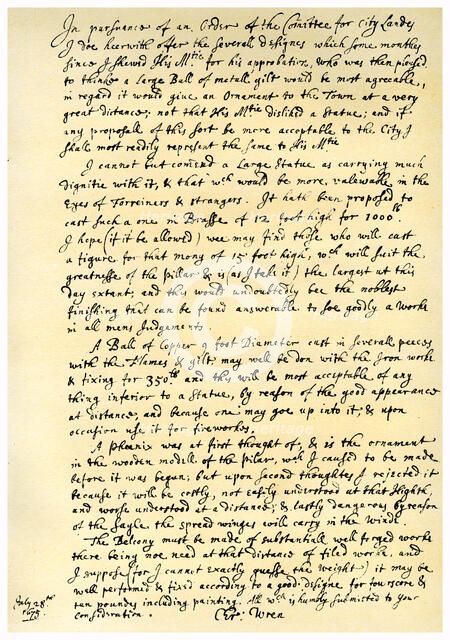 In pursuance of an Order of the Comittee for City Landes
I doe heerwith offer the severall designes which some monthes
since I shewed His Mtie for his approbation, who was then pleased
to thinke a large Ball of metall gilt would be most agreeable,
in regard it would give an Ornament to the Town at a very
great distance; not that His Mtie disliked a Statue; and if
any proposall of this sort be more acceptable to the City I
shall most readily represent the same to His Mtie
I cannot but comend a Large Statue as carrying much
dignitie with it, & that wch would be more valewable in the
Eyes of Forreiners & strangers. It hath been proposed to
cast such a one in Brasse of 12 foot high for 1000lb
I hope (if it be allowed) wee may find those who will cast
a figure for that mony of 15 foot high, wch will suit the
greatnesse of the pillar & is (as I take it) the largest at this
day extant; and this would undoubtedly bee the noblest
finishing that can be found answerable to soe goodly a worke
in all mens Judgements.
A Ball of Copper 9 foot Diameter cast in severall peeces
with the Flames & gilt, may well be don with the Iron worke
& fixing for 350lb and this will be most acceptable of any
thing inferior to a Statue, by reason of the good appearance
at distance, and because one may goe up into it; & upon
occasion use it for fireworkes.
A Phoenix was at first thought of, & is the ornament
in the wooden modell of the pillar, wch I caused to be made
before it was begun; but upon second thoughtes I rejected it
because it will be costly, not easily understood at that Highth,
and worse understood at a distance; & lastly dangerous by reason
of the sayle, the spread winges will carry in the winde.
The Belcony must be made of substantiall well forged worke
there being noe need at that distance of filed worke, and
I suppose (for I cannot exactly guesse the weight) it may be
well performed & fixed according to a good designe for fourscore &
ten poundes including painting. All wch is humbly submitted to your
consideration.
July 28th
1675
Chr: Wren
heritage